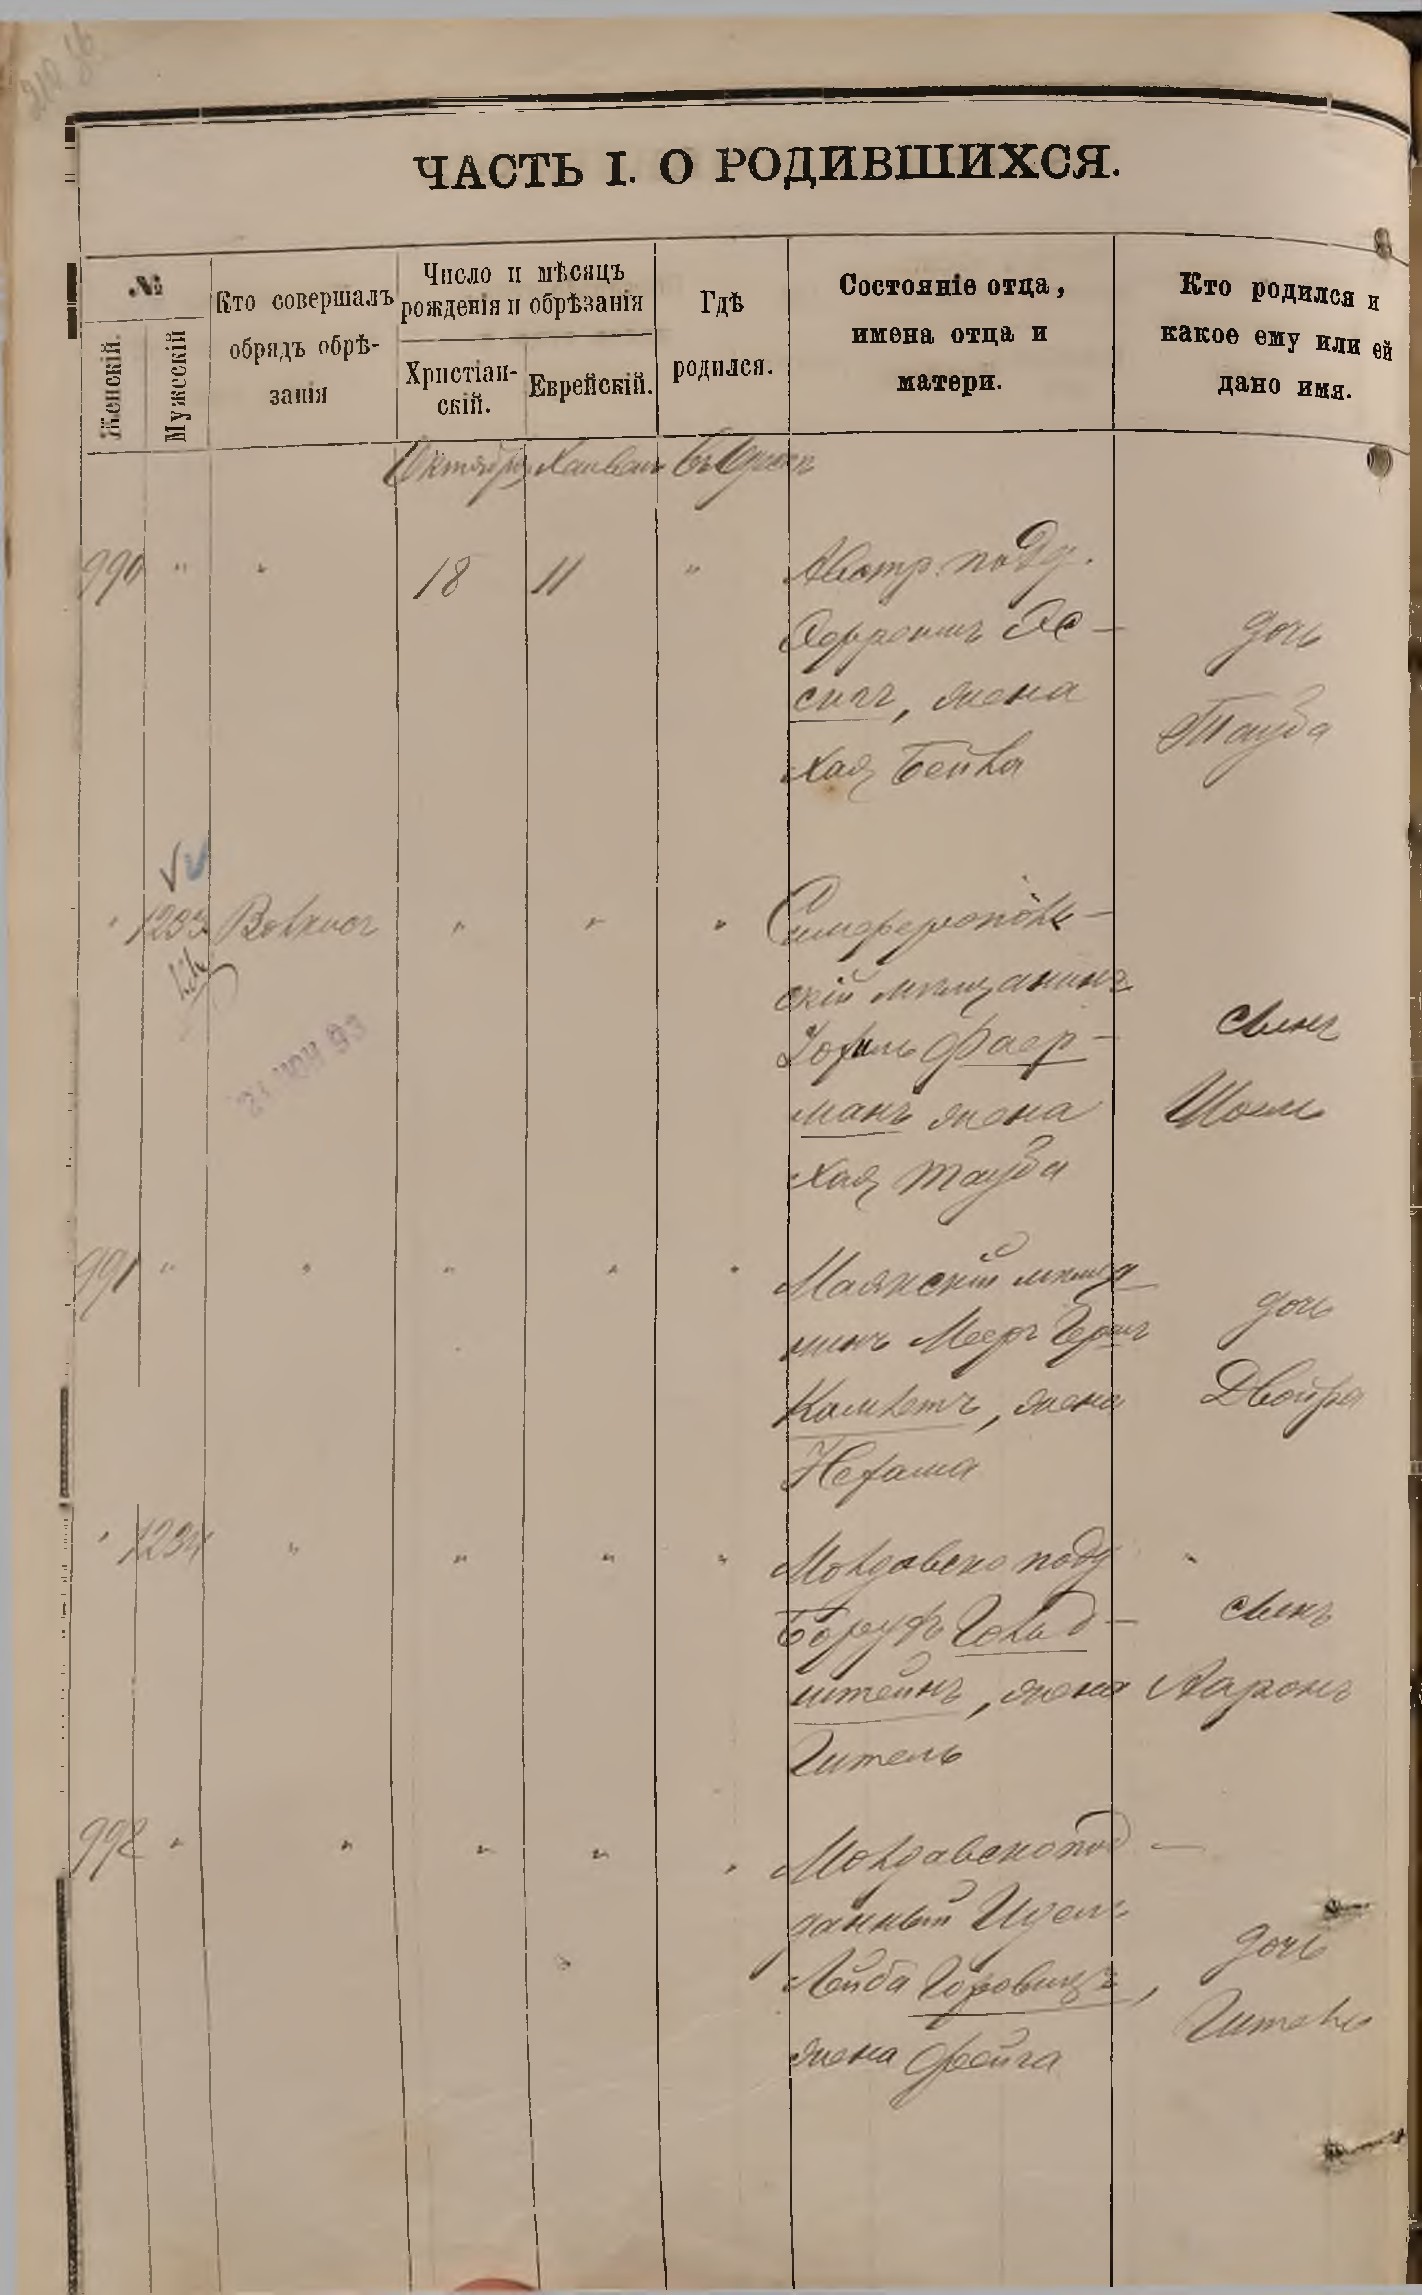 ЧАСТЬ I. О РОДИВШИХСЯ.
№
Женскій.
Мужсскій
Кто совершалъ
обрядъ обрѣ-
занія
Число и мѣсяцъ
рожденія и обрѣзанія
Христіан-
скій.
Еврейскій.
Гдѣ
родился.
Состояніе отца,
имена отца и
матери.
Кто родился и
какое ему или ей
дано имя.
Октября Хешван въ Одессѣ
990 " " 18 11 " Австр. подд.
Ос-
сипъ, жена
Хая Бейла
дочь
Тауба
" 1233 " " " Симферополь-
скій мѣщанинъ
Фаер-
манъ жена
Хая Тауба
сынъ
Шоел
21 ЮН 93
991 " " " " " Маякскій мѣща
нинъ Меер Герш
жена
Нехама
дочь
Двойра
" 1234 " " " " Молдавско подд
Борухъ Гольд-
штейнъ, жена
Гитель
сынъ
Ааронъ
992 " " " " " Молдавскопод-
данный Идель
Лейба Горовицъ,
жена Фейга
дочь
Гитель